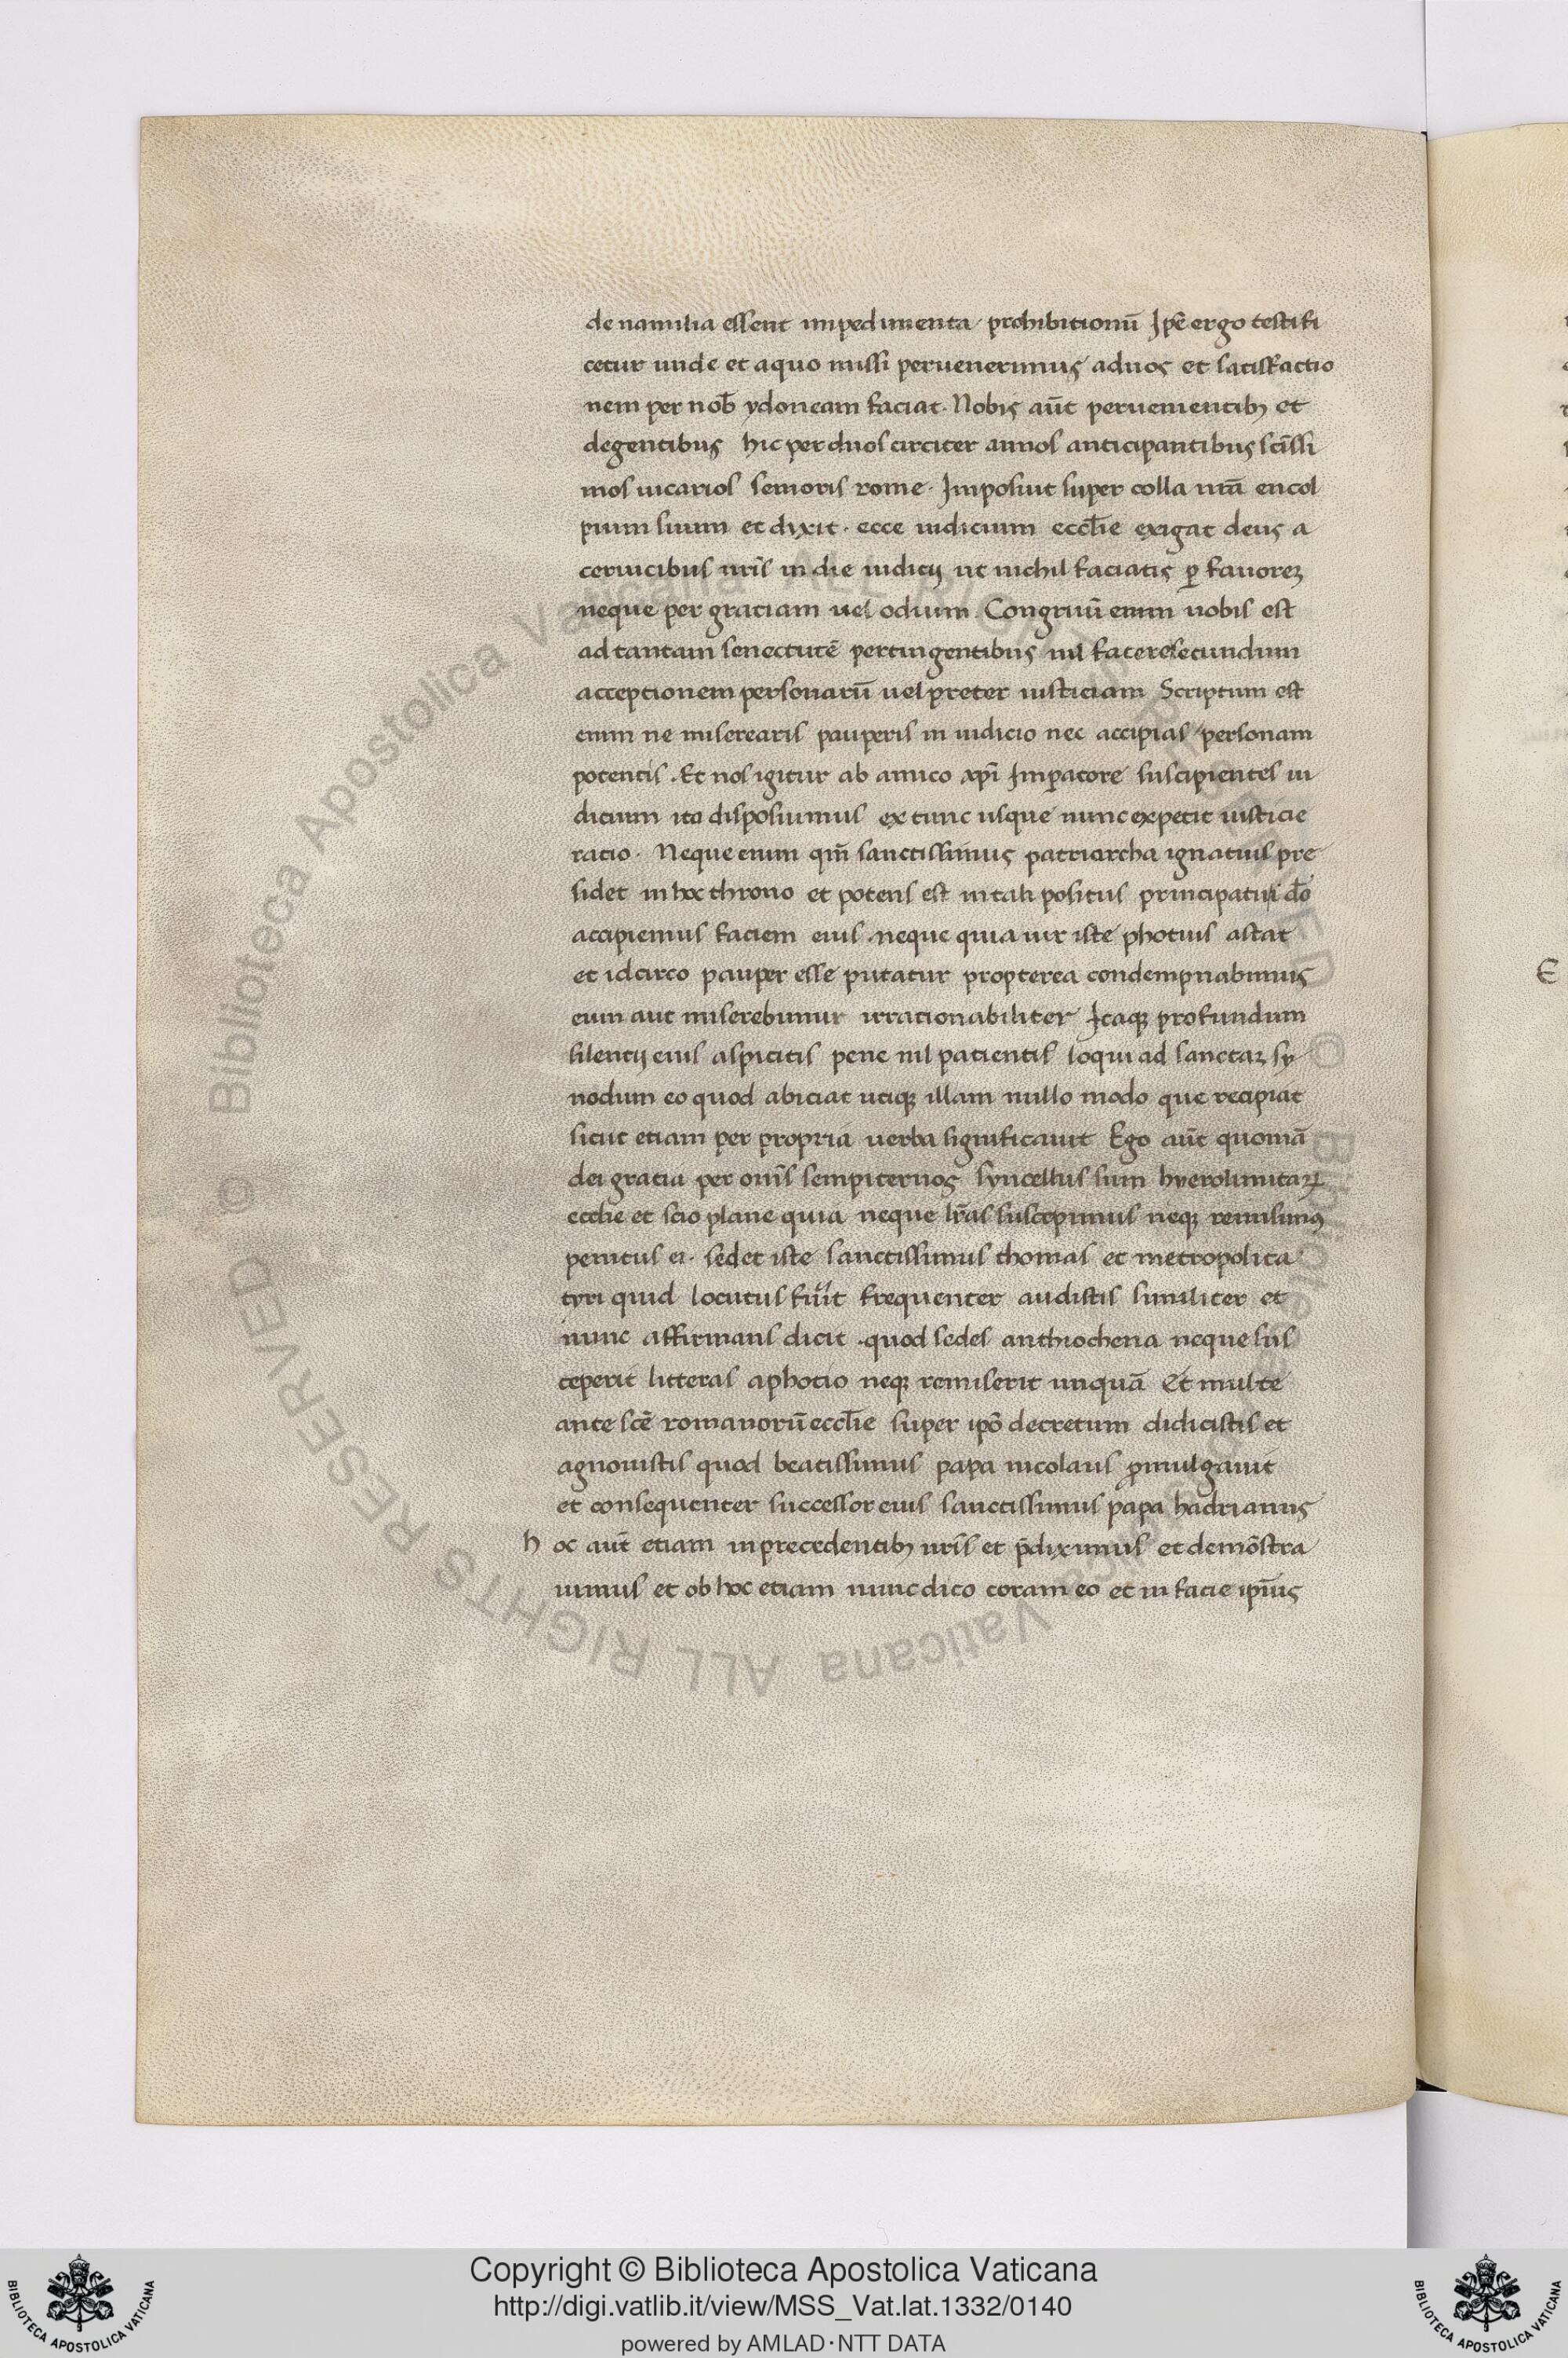 de nauilia essent impedimenta prohibitionū Ip̄e ergo testifi
cetur unde et aquo missi peruenerimus aduos et satisfactio
nem per nob̄ ydoneam faciat. Nobis aūt peruenientibꝫ et
degentibus hic per duos circiter annos anticipantibus sc̄issi
mos uicarios senioris rome. Imposuit super colla nr̄a encol
pium suum et dixit. ecce iudicium eccl̄ie exigat deus a
ceruicibus ur̄is in die iudicij ut nichil faciatis ꝑ fauoreꝫ
neque per graciam uel odium. Congruū enim uobis est
ad tantam senectutē pertingentibus nil facere secundum
acceptionem personarū uel preter iusticiam Scriptum est
enim ne miserearis pauperis in iudicio nec accipias personam
potentis. Et nos igitur ab amico xp̄i Imꝑatore suscipientes iu
dicium ita disposuimus ex tunc usque nunc expetit iusticie
ratio. Neque enim qm̄ sanctissimus patriarcha ignatius pre
sidet in hoc throno et potens est in tali positus principatu id̄o
accipiemus faciem eius. neque quia uir iste photius astat
et idcirco pauper esse putatur propterea condempnabimus
eum aut miserebimur irrationabiliter Itaqꝫ profundum
silentij eius aspicitis pene nil patientis loqui ad sanctaꝫ sy
nodum eo quod abiciat utiqꝫ illam nullo modo que recipiat
sicut etiam per propria uerba significauit Ego aūt quoniā
dei gratia per om̄s sempiternos syncellus sum hyerolimitaꝝ
ecclie et scio plane quia neque lr̄as suscepimus neqꝫ remisimꝰ
penitus ei. sedet iste sanctissimus thomas et metropolita
tyri quid locutus fuīt frequenter audistis similiter et
nunc affirmans dicit. quod sedes anthiochena neque sus
ceperit litteras aphotio neqꝫ remiserit unquā Et multe
ante sc̄e romanorū eccl̄ie super ip̄o decretum didicistis et
agnouistis quod beatissimus papa nicolaus ꝓmulgauit
et consequenter successor eius sanctissimus papa hadrianus
h oc aūt etiam in precedentibꝫ nr̄is et p̄diximus et demōstra
uimus et ob hoc etiam nunc dico coram eo et in facie ip̄ius
E
© Biblioteca Apostolica Vaticana ALL RIGHTS RESERVED © Biblioteca Apostolica Vaticana ALL RIGHTS RESERVED
Copyright © Biblioteca Apostolica Vaticana
http://digi.vatlib.it/view/MSS_Vat.lat.1332/0140
powered by AMLAD·NTT DATA
BIBLIOTECA APOSTOLICA VATICANA
BIBLIOTECA APOSTOLICA VATICANA